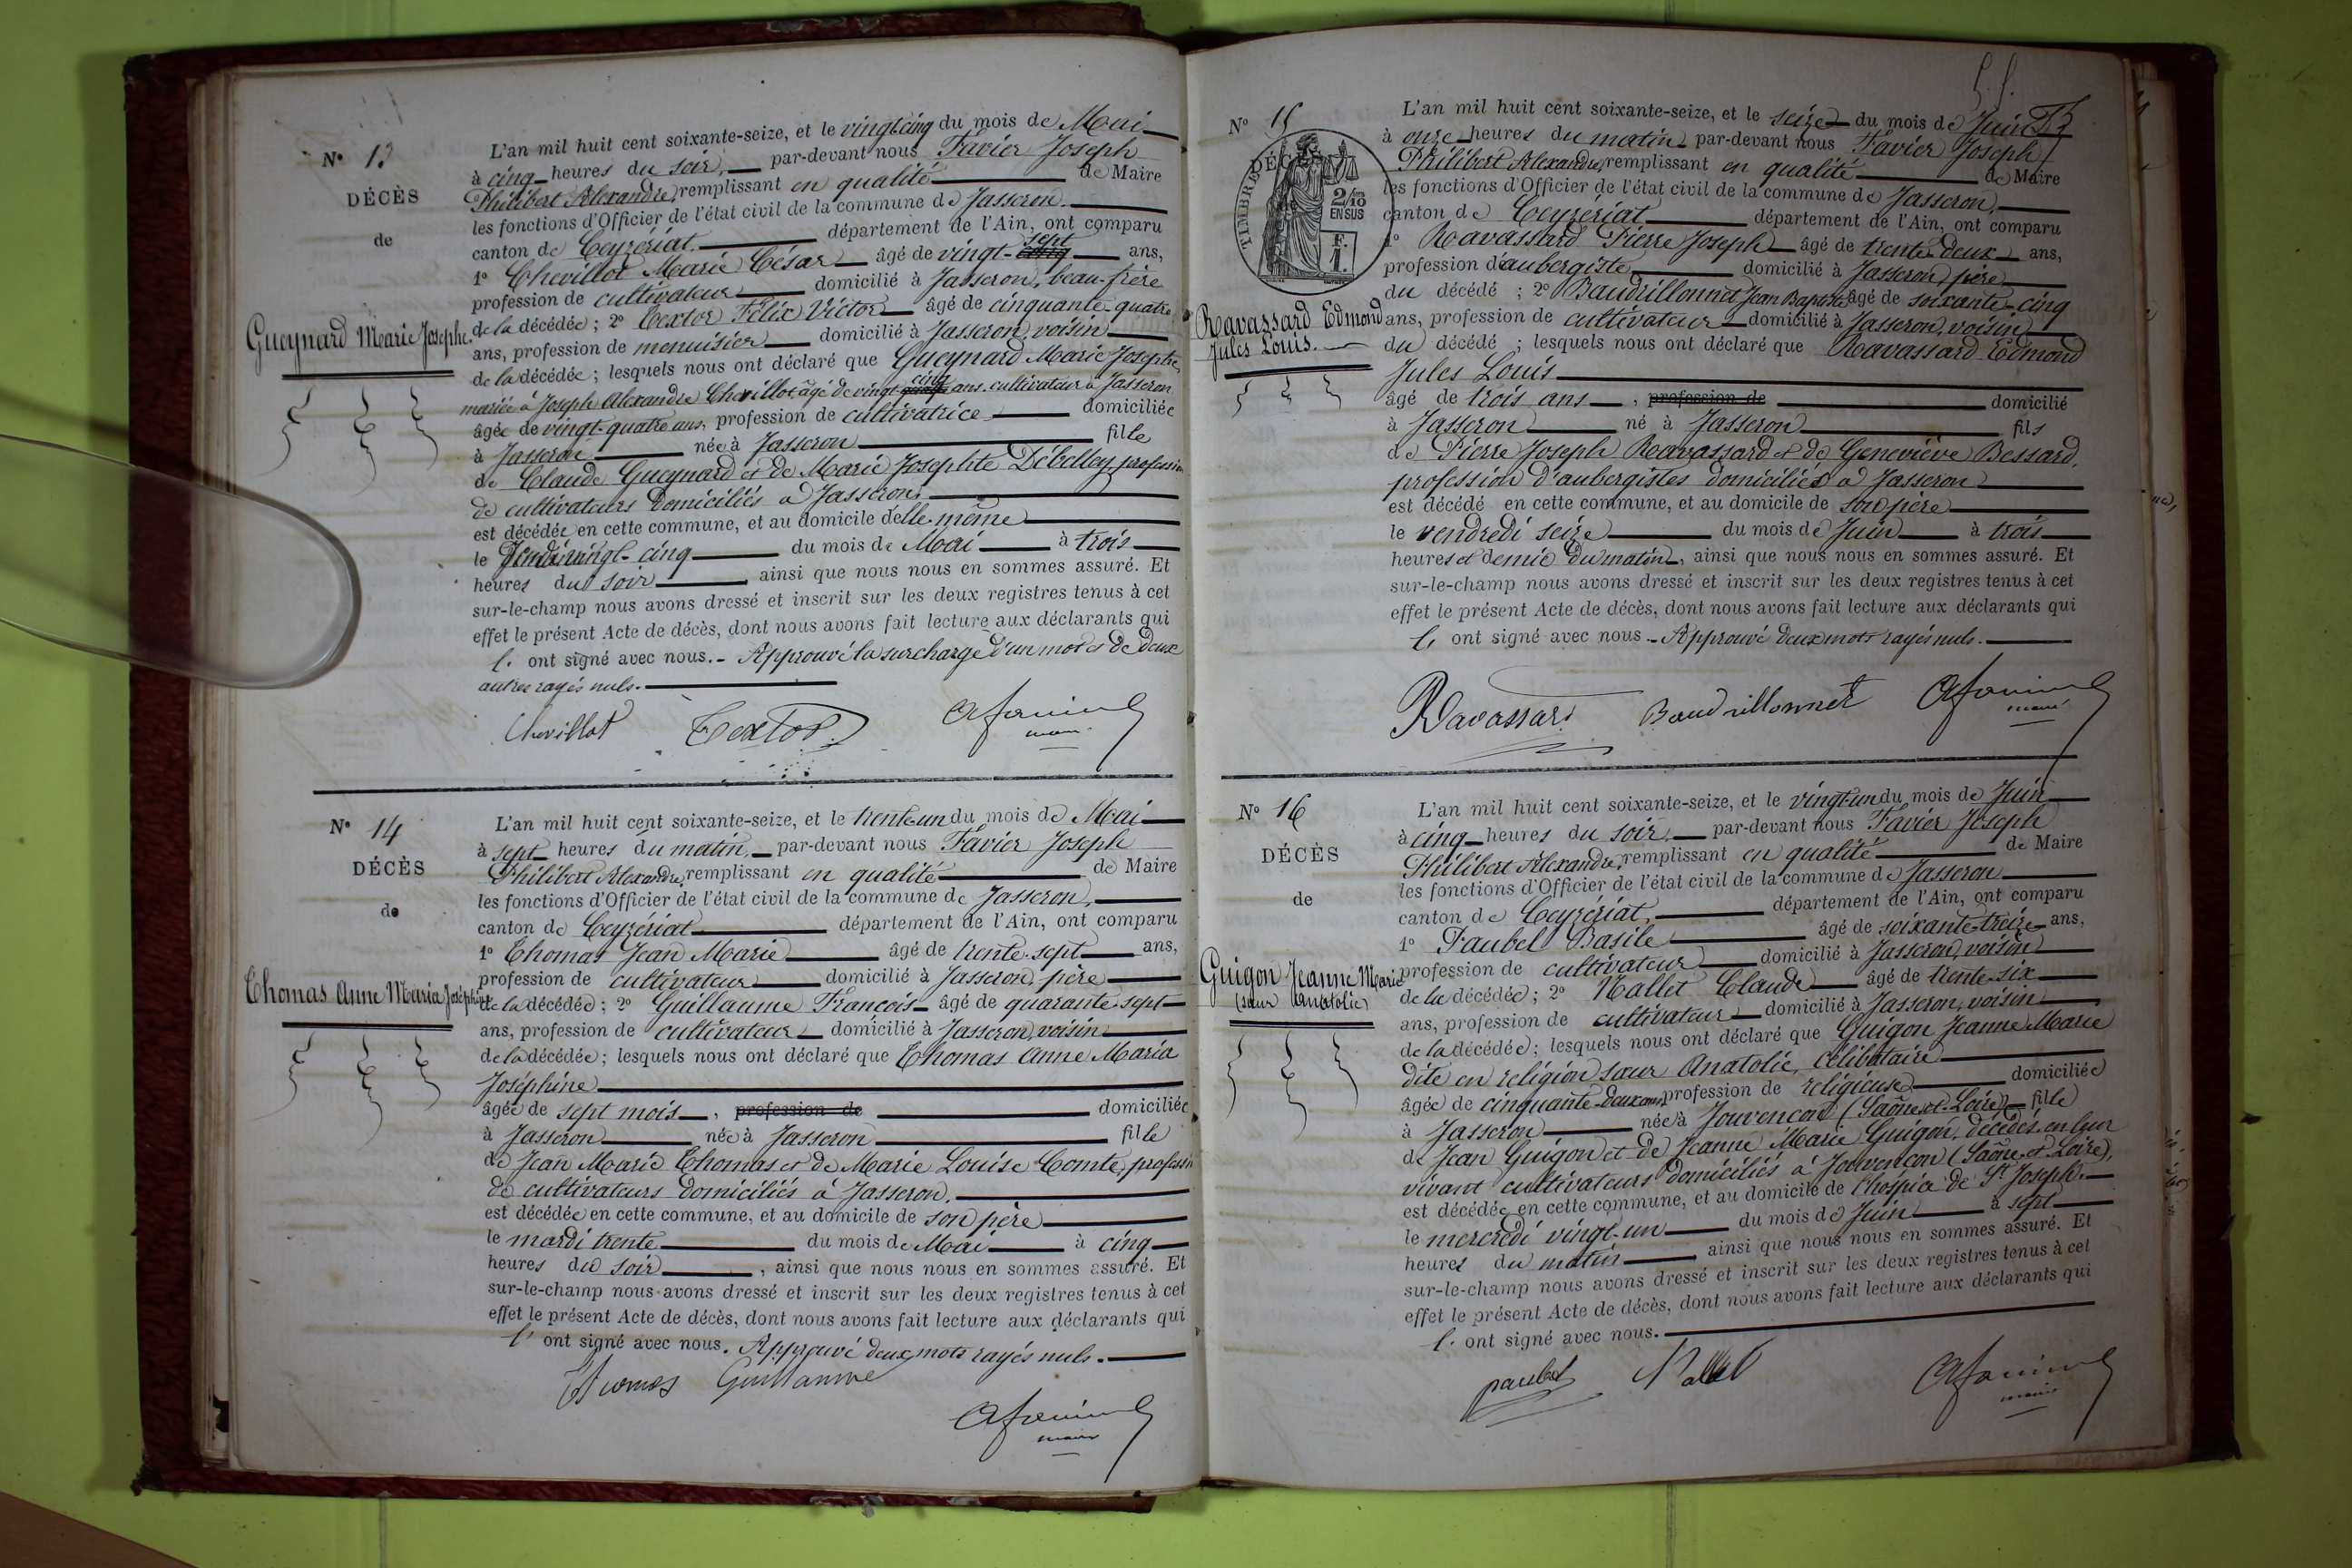 N° 13
DÉCÈS
de
Gueynard Marie Josephe.
L'an mil huit cent soixante-seize, et le vingt-cinq du mois de Mai
à cinq heures du soir, par-devant nous Favier Joseph
Philibert Alexandre, remplissant en qualité de Maire
les fonctions d'Officier de l'état civil de la commune de Jasseron.
canton de Ceyzériat. département de l'Ain, ont comparu
1° Chevillot Marie César âgé de vingt-sept ans,
profession de cultivateur domicilié à Jasseron, beau-frère
de la décédée; 2° Textor Félix Victor âgé de cinquante-quatre
ans, profession de menuisier domicilié à Jasseron, voisin
de la décédée; lesquels nous ont déclaré que Gueynard Marie Josephe,
mariée à Joseph Alexandre Chevillot, âgé de vingt-cinq ans, cultivateur à Jasseron
âgée de vingt-quatre ans, profession de cultivatrice domiciliée
à Jasseron née à Jasseron fille
de Claude Gueynard et de Marie Josephte Débelley, profession
de cultivateurs domiciliés à Jasseron,
est décédée en cette commune, et au domicile d'elle-même
le Jeudi vingt-cinq du mois de Mai à trois
heures du soir ainsi que nous nous en sommes assuré. Et
sur-le-champ nous avons dressé et inscrit sur les deux registres tenus à cet
effet le présent Acte de décès, dont nous avons fait lecture aux déclarants qui
l' ont signé avec nous.- Approuvé la surcharge d'un mot et de deux
autres rayés nuls.
Chevillot Textor
maire
N° 14
DÉCÈS
de
Thomas Anne Maria Joséphine
L'an mil huit cent soixante-seize, et le trente-un du mois de Mai
à sept heures du matin, par-devant nous Favier Joseph
Philibert Alexandre, remplissant en qualité de Maire
les fonctions d'Officier de l'état civil de la commune de Jasseron,
canton de Ceyzériat département de l'Ain, ont comparu
1° Thomas Jean Marie âgé de trente-sept ans,
profession de cultivateur domicilié à Jasseron, père
de la décédée; 2° Guillaume François âgé de quarante-sept
ans, profession de cultivateur domicilié à Jasseron, voisin
de la décédée; lesquels nous ont déclaré que Thomas Anne Maria
Joséphine
âgée de sept mois, profession de domiciliée
à Jasseron née à Jasseron fille
de Jean Marie Thomas et de Marie Louise Comte, profession
de cultivateurs domiciliés à Jasseron.
est décédée en cette commune, et au domicile de son père
le mardi trente du mois de Mai à cinq
heures du soir, ainsi que nous nous en sommes assuré. Et
sur-le-champ nous avons dressé et inscrit sur les deux registres tenus à cet
effet le présent Acte de décès, dont nous avons fait lecture aux déclarants qui
l' ont signé avec nous. Approuvé deux mots rayés nuls.
Thomas Guillaume
maire
N° 15
DÉCÈS
TIMBRE
2/10
EN SUS
F.
1.
Ravassard Edmond
Jules Louis.
L'an mil huit cent soixante-seize, et le seize du mois de Juin
à onze heures du matin par-devant nous Favier Joseph
Philibert Alexandre, remplissant en qualité de Maire
les fonctions d'Officier de l'état civil de la commune de Jasseron,
canton de Ceyzériat département de l'Ain, ont comparu
1° Ravassard Pierre Joseph âgé de trente-deux ans,
profession d'aubergiste domicilié à Jasseron, père
du décédé; 2° Baudrillonnet Jean Baptiste âgé de soixante-cinq
ans, profession de cultivateur domicilié à Jasseron, voisin
du décédé; lesquels nous ont déclaré que Ravassard Edmond
Jules Louis
âgé de trois ans, profession de domicilié
à Jasseron né à Jasseron fils
de Pierre Joseph Ravassard et de Geneviève Bessard,
profession d'aubergistes domiciliés à Jasseron
est décédé en cette commune, et au domicile de son père
le vendredi seize du mois de Juin à trois
heures et demie du matin, ainsi que nous nous en sommes assuré. Et
sur-le-champ nous avons dressé et inscrit sur les deux registres tenus à cet
effet le présent Acte de décès, dont nous avons fait lecture aux déclarants qui
l' ont signé avec nous.- Approuvé deux mots rayés nuls.
Ravassard Baudrillonnet
maire
N° 16
DÉCÈS
de
Guigon Jeanne Marie
(sœur Anatolie)
L'an mil huit cent soixante-seize, et le vingt-un du mois de Juin
à cinq heures du soir, par-devant nous Favier Joseph
Philibert Alexandre, remplissant en qualité de Maire
les fonctions d'Officier de l'état civil de la commune de Jasseron
canton de Ceyzériat, département de l'Ain, ont comparu
1° Paubel Basile âgé de soixante-treize ans,
profession de cultivateur domicilié à Jasseron, voisin
de la décédée; 2° Nallet Claude âgé de trente-six
ans, profession de cultivateur domicilié à Jasseron, voisin
de la décédée; lesquels nous ont déclaré que Guigon Jeanne Marie
dite en religion sœur Anatolie, célibataire
âgée de cinquante-deux ans, profession de religieuse domiciliée
à Jasseron née à Jouvençon (Saône-et-Loire) fille
de Jean Guigon et de Jeanne Marie Guigon, décédés, en leur
vivant cultivateurs domiciliés à Jouvençon (Saône-et-Loire),
est décédée en cette commune, et au domicile de l'hospice de St Joseph.
le mercredi vingt-un du mois de Juin à sept
heures du matin ainsi que nous nous en sommes assuré. Et
sur-le-champ nous avons dressé et inscrit sur les deux registres tenus à cet
effet le présent Acte de décès, dont nous avons fait lecture aux déclarants qui
l' ont signé avec nous.
paubel Nallet
maire